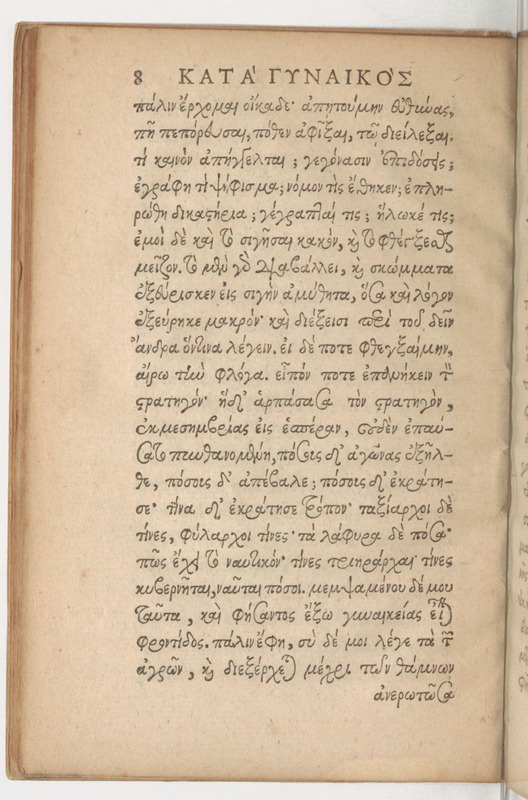 8 ΚΑΤΑ ΓΥΝΑΙΚΟΣ
πάλιν ἔρχομαι οἴκαδε· ἀπῃτούμην εὐθύνας,
πῆ πεπόρευσαι, πόθεν ἀφῖξαι, τῷ διείλεξαι.
τί καινὸν ἀπήγγελται; γεγόνασιν ἐπιδόσεις;
ἐγράφη τὶ ψήφισμα; νόμον τὶς ἔθηκεν; ἐπλη-
ρώθη δικαστήρια; γέγραπταί τις; ἥλωκέ τις;
ἐμοὶ δὲ καὶ τὸ σιγῆσαι κακὸν, καὶ τὸ φθέγξασθαι
μεῖζον. τὸ μὲν γὸ διαβάλλει, καὶ σκώμματα
ἐξεύρισκεν εἰς σιγὴν ἀμύθητα, ὅσα καὶ λόγον
ἐξεύρηκε μακρόν· καὶ διέξεισι περὶ τοῦ δεῖν
ἄνδρα ὅντινα λέγειν. εἰ δέ ποτε φθεγξαίμην,
αἴρω τὴν φλόγα. εἶπόν ποτε ἐπαινεῖν τὸν
στρατηγόν· ἡ δ' ἁρπάσασα τὸν στρατηγὸν,
ἐκ μεσημβρίας εἰς ἑσπέραν, οὐδὲν ἐπαύ-
σατο πυνθανομένη, πόσους δ' ἀγῶνας ἐξῆλ-
θε, πόσους δ' ἀπέβαλε; πόσους δ' ἐκράτη-
σε· τίνα δ' ἐκράτησε τρόπον· ταξίαρχοι δὲ
τίνες, φύλαρχοι τίνες· τὰ λάφυρα δὲ πόσα·
πῶς ἔχει τὸ ναυτικόν· τίνες τριηράρχαι· τίνες
κυβερνῆται, ναῦται πόσοι. μεμψαμένου δέ μου
ταῦτα, καὶ φήσαντος ἔξω γυναικείας εἶναι
φροντίδος. πάλιν ἔφη, σὺ δέ μοι λέγε τὰ τῶν
ἀγρῶν, καὶ διεξέρχεται μέχρι τῶν θάμνων
ἀνερωτῶσα